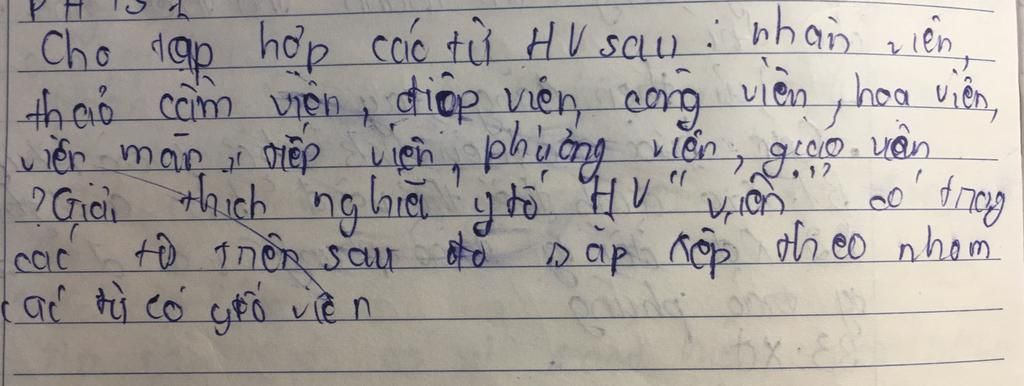 Cho tập hợp các từ HV sau : nhân viên,
thảo cầm viên, điệp viên, công viên, hoa viên,
viên mãn, tiếp viên, phựơng viên, giáo viên
? Giải thích nghĩa ytố HV " viên " có trong
các từ trên sau đó sắp xếp theo nhóm
các từ có ytố viên